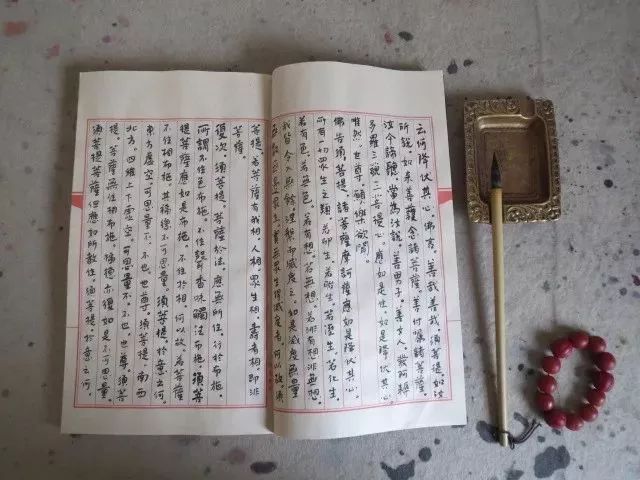 云何降伏其心。佛言。善哉善哉。須菩提。如汝
所說。如來善護念諸菩薩。善付囑諸菩薩。
汝今諦聽。當為汝說。善男子。善女人。發阿耨
多羅三藐三菩提心。應如是住。如是降伏其心。
唯然。世尊。願樂欲聞。
佛告須菩提。諸菩薩摩訶薩應如是降伏其心。
所有一切眾生之類。若卵生。若胎生。若濕生。若化生。
若有色。若無色。若有想。若無想。若非有想非無想。
我皆令入無餘涅槃而滅度之。如是滅度無量
無數無邊眾生。實無眾生得滅度者。何以故。須
菩提。若菩薩有我相。人相。眾生相。壽者相。即非
菩薩。
復次。須菩提。菩薩於法。應無所住。行於布施。
所謂不住色布施。不住聲香味觸法布施。須菩
提。菩薩應如是布施。不住於相。何以故。若菩薩
不住相布施。其福德不可思量。須菩提。於意云何。
東方虛空可思量不。不也。世尊。須菩提。南西
北方。四維上下虛空。可思量不。不也。世尊。須菩
提。菩薩無住相布施。福德亦復如是不可思量。
須菩提。菩薩但應如所教住。須菩提。於意云何。